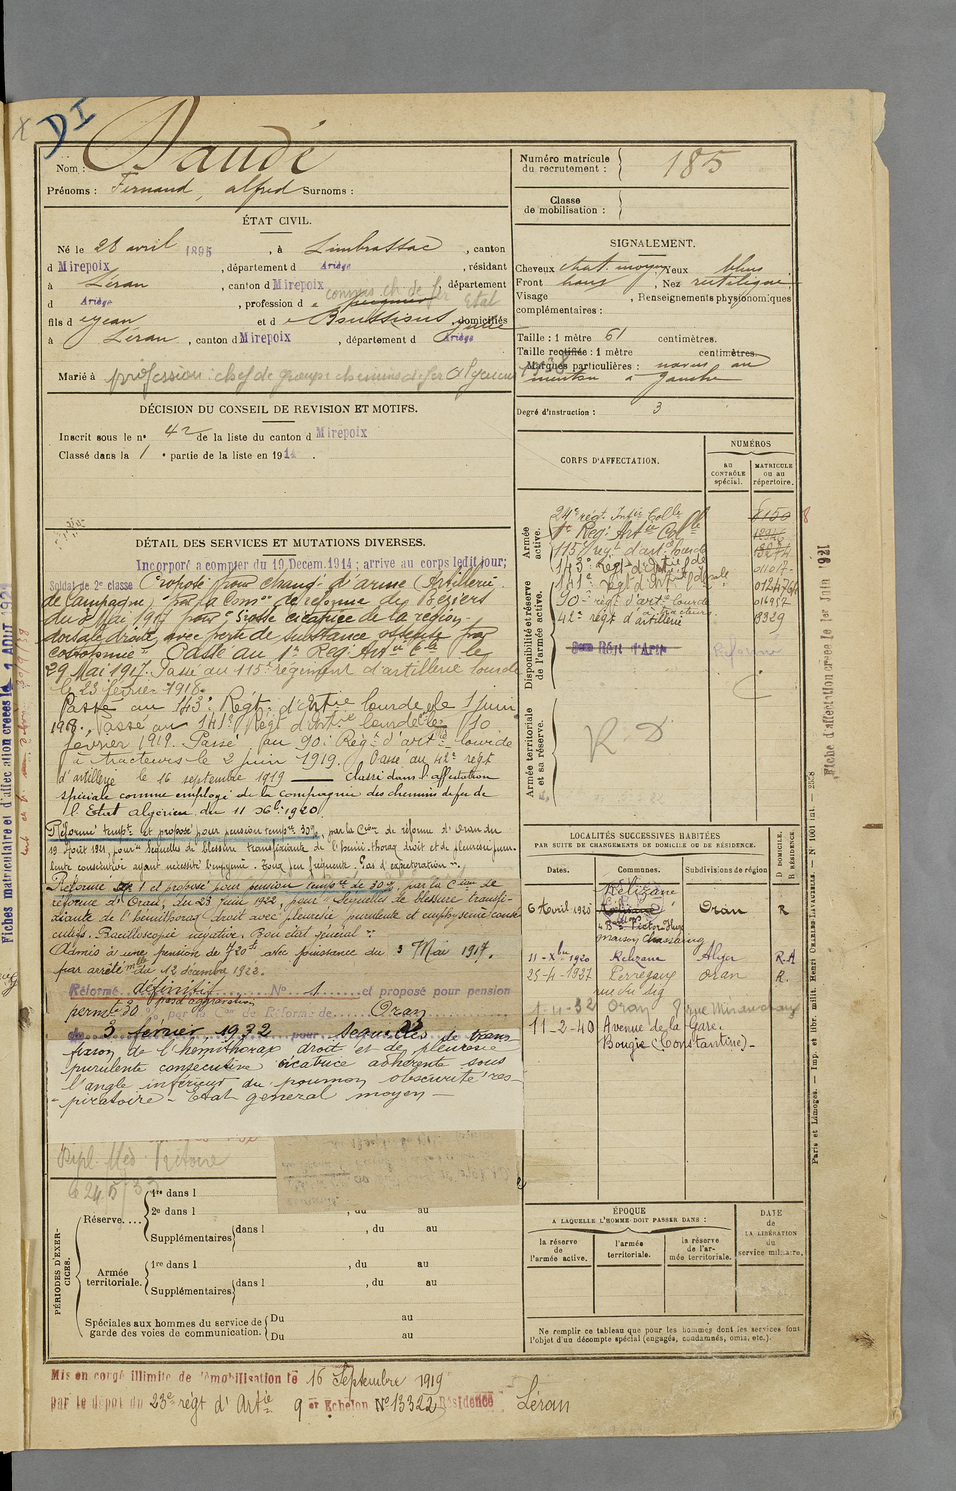 DI
Nom : Daudé
Prénoms : Fernand, alfred Surnoms :
ÉTAT CIVIL.
Né le 28 avril 1895, à Limbrassac, canton
d Mirepoix, département d Ariège, résidant
à Léran, canton d Mirepoix, département
d Ariège, profession d
fils d e Jean et d e Boussious Julie, domiciliés
à Léran, canton d Mirepoix, département d Ariège
Marié à
profession : chef de groupe chemins de fer Algériens
DÉCISION DU CONSEIL DE REVISION ET MOTIFS.
Inscrit sous le n° 42 de la liste du canton d Mirepoix
Classé dans la 1 e partie de la liste en 1914.
DÉTAIL DES SERVICES ET MUTATIONS DIVERSES.
Incorporé a compter du 19 Decem. 1914 ; arrive au corps ledit jour ;
Soldat de 2e classe Proposé pour chang.t d'arme (Artillerie
de Campagne) par la Com.on de réforme de Béziers
du 8 Mai 1917 pour "Grosse cicatrice de la région
dorsale droite, avec perte de substance osseuse par
costotomie" Passé au 1r Reg. Art.ie C.le le
29 Mai 1917. Passé au 115e régiment d'artillerie lourde
le 23 février 1918.
Passé au 143e Régt d'Art.ie lourde le 1 juin
1918. Passé au 141e Régt d'Art.ie lourde le 10
février 1919. Passé au 90e Régt d'art.ie lourde
à tracteurs le 2 juin 1919. Passé au 42e régt
d'artillerie le 16 septembre 1919 — classé dans l'affectation
spéciale comme employé de la compagnie des chemins de fer de
l'Etat algérien du 11 Xbre 1920
Réformé tempre et proposé pour pension tempre 30%, par la Cion de réforme d'Oran du
19 Août 1921, pour "séquelles de blessure transfixiante de l'hémi-thorax droit et de pleurésie puru-
lente consécutive ayant nécessité l'empyème. Toux peu fréquente. Pas d'expectoration".
Réforme N° 1 et proposé pour pension tempre de 30%, par la Cion de
réforme d'Oran, du 23 Juin 1922, pour "Séquelles de blessure transfi-
xiante de l'hémithorax droit avec pleurésie purulente et empyème consé-
cutifs. Bacilloscopie négative. Bon état général".
Admis à une pension de 720 fs avec jouissance du 3 Mai 1917.
par arrêté mel du 12 décembre 1923.
Réformé définitif N° 1 et proposé pour pension
permte 30 % par la Cion de Réforme de Oran
du 3 fevrier 1932 pour Sequelles de trans-
fixion de l'hemithorax droit et de pleurésie
purulente consecutive cicatrice adhérente sous
l'angle inférieur du poumon obscurité res-
piratoire - Etat general moyen -
Dipl. Méd. Victoire
le 24/5/35
PÉRIODES D'EXERCICES.
Réserve....
1re dans l
2e dans l , du au
Supplémentaires dans l , du au
Armée territoriale.
1re dans l , du au
Supplémentaires dans l , du au
Spéciales aux hommes du service de garde des voies de communication.
Du au
Du au
Mis en congé illimité de démobilisation le 16 Septembre 1919
par le dépôt du 23e régt d'Artie 9 er Echelon N° 13322 Résidence Léran
Numéro matricule du recrutement : 185
Classe de mobilisation :
SIGNALEMENT.
Cheveux chat. moyen Yeux bleus
Front haut, Nez rectiligne
Visage , Renseignements physionomiques
complémentaires :
Taille : 1 mètre 61 centimètres.
Taille rectifiée : 1 mètre centimètres.
Marques particulières : naevus au
menton à gauche
Degré d'instruction : 3
CORPS D'AFFECTATION.
NUMÉROS
AU CONTRÔLE spécial.
MATRICULE ou au répertoire.
Armée active.
24e régt Infie Colle 8150
1er Reg. Artie Colle
115e régt d'art. lourde
143e Regt d'Artie lde
141e Régt d'Artie lourde
90e régt d'artie lourde à tracteurs 016957
42e régt d'artillerie 18329
Disponibilité et réserve de l'armée active.
Réformé
Armée territoriale et sa réserve.
R. D
LOCALITÉS SUCCESSIVES HABITÉES
PAR SUITE DE CHANGEMENTS DE DOMICILE OU DE RÉSIDENCE.
Dates. Communes. Subdivisions de région D DOMICILE. R RÉSIDENCE.
Relizane
6 Avril 1920 Oran R
4 Bd Victor-Hugo
maison Chassaing
11-Xbre 1920 Relizane Alger R.A
25-4-1927 Perregaux Oran R.
rue du dig
1-11-32 Oran 7 rue
11-2-40 Avenue de la Gare.
Bougie (Constantine).-
ÉPOQUE
A LAQUELLE L'HOMME DOIT PASSER DANS :
la réserve de l'armée active.
l'armée territoriale.
la réserve de l'armée territoriale.
DATE de LA LIBÉRATION du service militaire.
Ne remplir ce tableau que pour les hommes dont les services font
l'objet d'un décompte spécial (engagés, condamnés, omis, etc.).
Paris et Limoges. — Imp. et libr. milit. Henri CHARLES-LAVAUZELLE.
Fiche d'affectation créée le 1er Juin 1921
Fiches matriculaire et d'affectation créées le 1 AOUT 1921